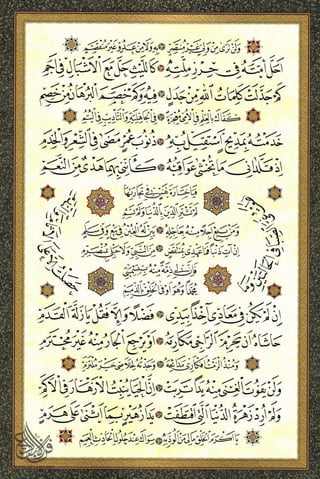 وَلَنْ تَرَى مِنْ وَلِيٍّ غَيْرَ مُنْتَصِرٍ بِهِ وَلَا مِنْ عَدُوٍّ غَيْرَ مُنْقَصِمِ
أَحَلَّ أُمَّتَهُ فِي حِرْزِ مِلَّتِهِ كَاللَّيْثِ حَلَّ مَعَ الْأَشْبَالِ فِي أَجَمِ
كَمْ جَدَّلَتْ كَلِمَاتُ اللهِ مِنْ جَدَلٍ فِيهِ وَكَمْ خَصَمَ الْبُرْهَانُ مِنْ خَصِمِ
كَفَاكَ بِالْعِلْمِ فِي الْأُمِّيِّ مُعْجِزَةً فِي الْجَاهِلِيَّةِ وَالتَّأْدِيبِ فِي الْيُتُمِ
خَدَمْتُهُ بِمَدِيحٍ أَسْتَقِيلُ بِهِ ذُنُوبَ عُمْرٍ مَضَى فِي الشِّعْرِ وَالْخِدَمِ
إِذْ قَلَّدَانِيَ مَا تُخْشَى عَوَاقِبُهُ كَأَنَّنِي بِهِمَا هَدْيٌ مِنَ النَّعَمِ
فَيَا خَسَارَةَ نَفْسٍ فِي تِجَارَتِهَا
لَمْ تَشْتَرِ الدِّينَ بِالدُّنْيَا وَلَمْ تَسُمِ
وَمَنْ يَبِعْ آجِلًا مِنْهُ بِعَاجِلِهِ يَبِنْ لَهُ الْغَبْنُ فِي بَيْعٍ وَفِي سَلَمِ
إِنْ آتِ ذَنْبًا فَمَا عَهْدِي بِمُنْتَقِضٍ مِنَ النَّبِيِّ وَلَا حَبْلِي بِمُنْصَرِمِ
فَإِنَّ لِي ذِمَّةً مِنْهُ بِتَسْمِيَتِي
مُحَمَّدًا وَهُوَ أَوْفَى الْخَلْقِ بِالذِّمَمِ
إِنْ لَمْ يَكُنْ فِي مَعَادِي آخِذًا بِيَدِي فَضْلًا وَإِلَّا فَقُلْ يَا زَلَّةَ الْقَدَمِ
حَاشَاهُ أَنْ يَحْرِمَ الرَّاجِي مَكَارِمَهُ أَوْ يَرْجِعَ الْجَارُ مِنْهُ غَيْرَ مُحْتَرَمِ
وَمُنْذُ أَلْزَمْتُ أَفْكَارِي مَدَائِحَهُ وَجَدْتُهُ لِخَلَاصِي خَيْرَ مُلْتَزِمِ
وَلَنْ يَفُوتَ الْغِنَى مِنْهُ يَدًا تَرِبَتْ إِنَّ الْحَيَا يُنْبِتُ الْأَزْهَارَ فِي الْأَكَمِ
وَلَمْ أُرِدْ زَهْرَةَ الدُّنْيَا الَّتِي اقْتَطَفَتْ يَدَا زُهَيْرٍ بِمَا أَثْنَى عَلَى هَرِمِ
يَا أَكْرَمَ الْخَلْقِ مَا لِي مَنْ أَلُوذُ بِهِ سِوَاكَ عِنْدَ حُلُولِ الْحَادِثِ الْعَمِمِ